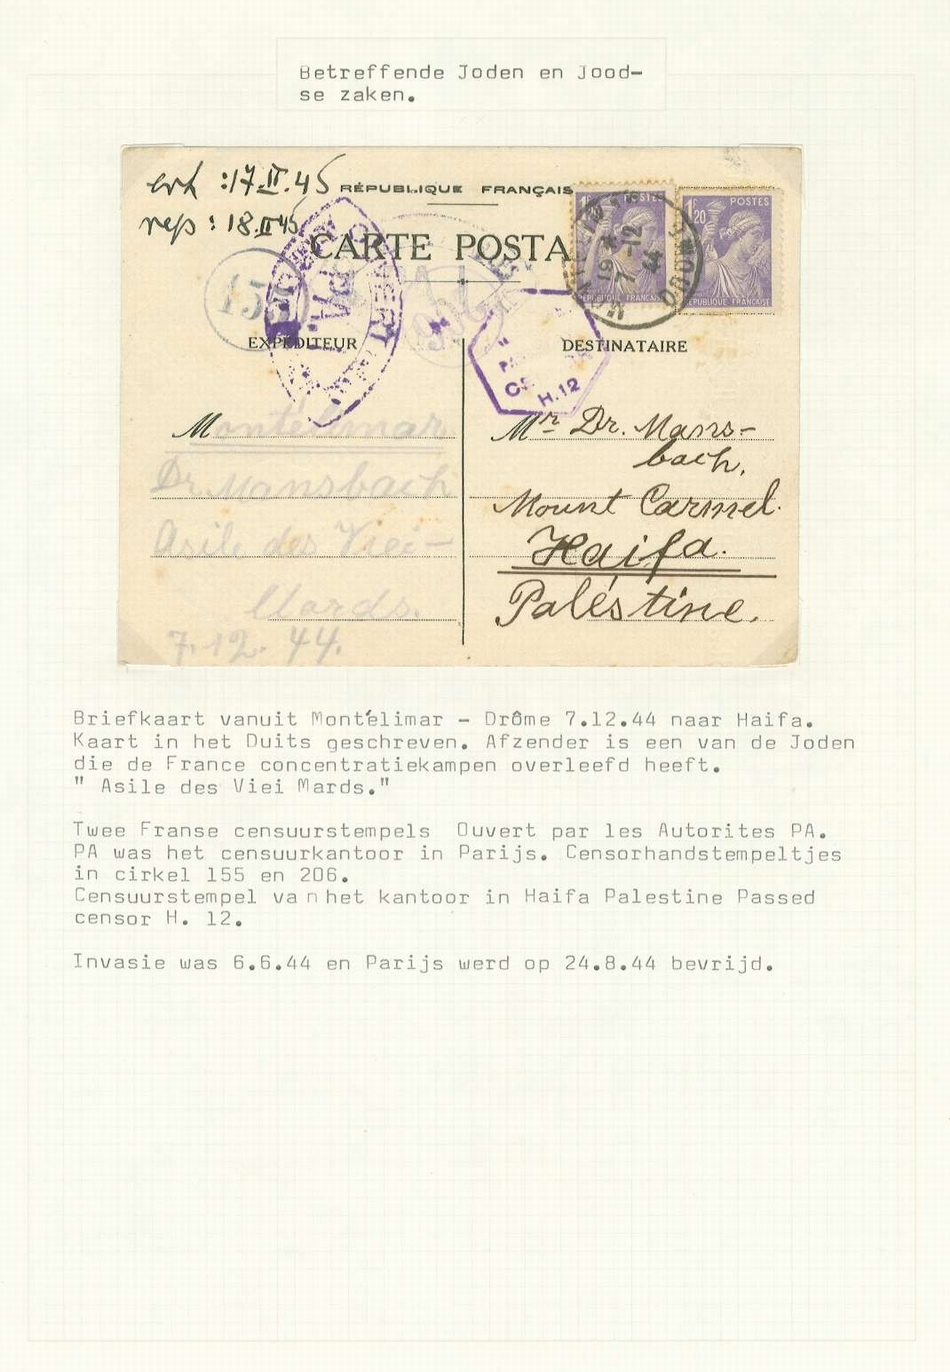 Betreffende Joden en Jood-
se zaken.
erh :17.II.45
rep : 18.II.45
RÉPUBLIQUE FRANÇAIS
CARTE POSTA
155
206
EXPÉDITEUR
DESTINATAIRE
POSTES
RÉPUBLIQUE FRANÇAISE
1F20
POSTES
RÉPUBLIQUE FRANÇAISE
19 *
7 -12
44
DROME
OUVERT
P.A.
H.12
Montélimar
Dr. Mansbach
Asile des Viei-
llards.
7.12. 44.
Mr Dr. Mans-
bach,
Mount Carmel.
Haifa.
Paléstine.
Briefkaart vanuit Montélimar - Drôme 7.12.44 naar Haifa.
Kaart in het Duits geschreven. Afzender is een van de Joden
die de France concentratiekampen overleefd heeft.
" Asile des Viei Mards."
Twee Franse censuurstempels Ouvert par les Autorites PA.
PA was het censuurkantoor in Parijs. Censorhandstempeltjes
in cirkel 155 en 206.
Censuurstempel van het kantoor in Haifa Palestine Passed
censor H. 12.
Invasie was 6.6.44 en Parijs werd op 24.8.44 bevrijd.